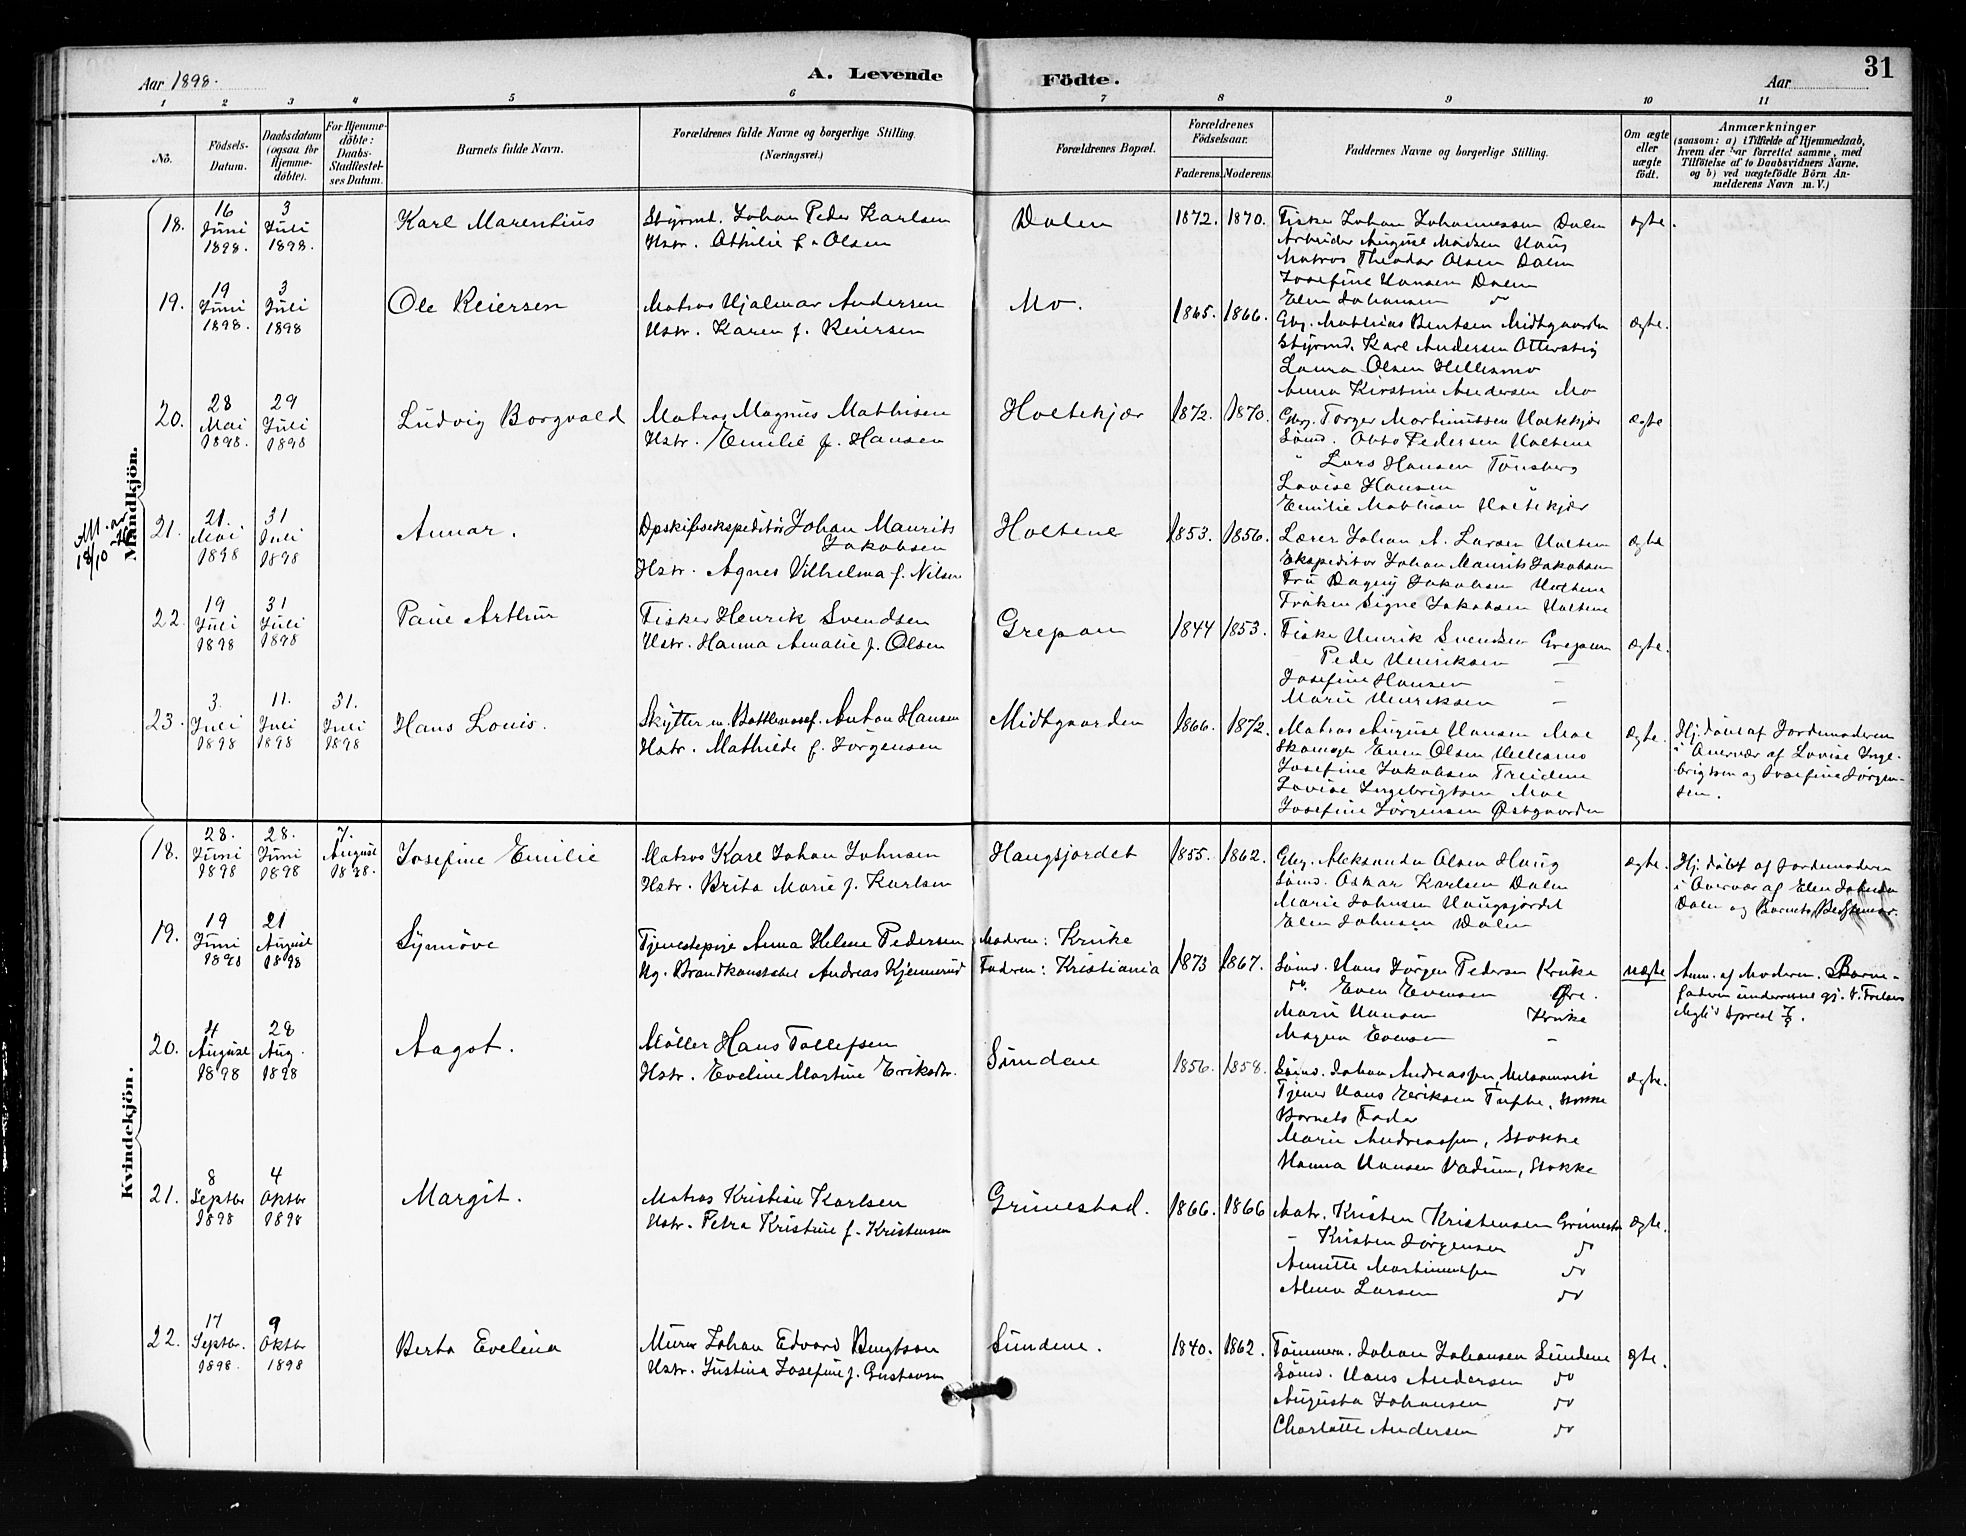 Aar 1898.
A. Levende
Födte.
Aar
31
1 2 3 4 5 6 7 8 9 10 11
No.
Födsels-Datum.
Daabsdatum (ogsaa for Hjemme-döbte).
For Hjemme-döbte: Daabs-Stadfæstel-ses Datum.
Barnets fulde Navn.
Forældrenes fulde Navne og borgerlige Stilling.
(Næringsvei.)
Forældrenes Bopæl.
Forældrenes Födselsaar.
Faderens. Moderens.
Faddernes Navne og borgerlige Stilling.
Om ægte eller uægte födt.
Anmærkninger
(saasom: a) i Tilfælde af Hjemmedaab,
hvem der har forrettet samme, med
Tilföielse af to Daabsvidners Navne,
og b) ved uægtefödte Börn An-
melderens Navn m. V.)
Mandkjön.
18. 16 Juni 1898. 3 Juli 1898. Karl Marentius
Styrmd. Johan Peder Karlsen
Hstr. Othilie f. Olsen
Dalen 1872. 1870.
Fisker Johan Johannessen Dalen
Arbeider August Madsen Haug
Matros Theodor Olsen Dalen
Josefine Hansen Dalen
Elen Johansen do
ægte.
19. 19 Juni 1898. 3 Juli 1898 Ole Reiersen
Matros Hjalmar Andersen
Hstr. Karen f. Reiersen
Mo. 1865. 1866.
Gbr. Mathias Bentsen Midtgaarden
Styrmd. Karl Andersen Ottersti
Laura Olsen Hellesmo
Anna Kirstine Andersen Mo
ægte.
20. 28 Mai 1898. 29 Juli 1898 Ludvig Borgvald
Matros Magnus Mathisen
Hstr. Emilie f. Hansen
Holtekjær 1872. 1870.
Gbr. Torger Martinussen Holtekjær
Sömd. Otto Pedersen Holtene
" Lars Hansen Tönsberg
Lovise Hansen
Emilie Mathisen Holtekjær
ægte
21. 21. Mai 1898 31 Juli 1898 Annar.
Dpskibsekspeditör Johan Maurits
Jakobsen
Hstr. Agnes Vilhelma f. Nilsen
Holtene 1853. 1856.
Lærer Johan A. Larsen Holtene
Ekspeditör Johan Maurits Jakobsen
Fru Dagny Jakobsen Holtene
Fröken Signe Jakobsen Holtene
ægte
22. 19 Juli 1898 31 Juli 1898 Paul Arthur
Fisker Henrik Svendsen
Hstr. Hanna Amalie f. Olsen
Grepan 1844 1853.
Fisker Henrik Svendsen Grepan
Peder Henriksen —
Josefine Hansen —
Marie Henriksen —
ægte.
23. 3. Juli 1898 11. Juli 1898 31. Juli 1898 Hans Louis.
Skytter m. Bottlenosef. Anton Hansen
Hstr. Mathilde f. Jörgensen
Midtgaarden 1866. 1872.
Matros August Hansen Moe
Skomager Even Olsen Hellesmo
Josefine Jakobsen Treidene
Lovise Ingebrigtsen Moe
Josefine Jörgensen Östgaarden
ægte.
Hj. döbt af Jordemoderen
i Overvær af Lovise Inge-
brigtsen og Josefine Jörgen-
sen.
Kvindekjön.
18. 28. Juni 1898 28. Juni 1898 7. August 1898. Josefine Emilie
Matros Karl Johan Johnsen
Hstr. Brita Marie f. Karlsen
Haugsjordet 1855. 1862.
Gbr. Aleksander Olsen Haug
Sömd. Oskar Karlsen Dalen
Marie Johnsen Haugsjordet
Elen Johnsen Dalen
ægte.
Hj. döbt af Jordemoderen
i Overvær af Elen Johnsen
Dalen og Barnets Bedstemor.
19. 19 Juni 1898 21 August 1898 Synnöve
Tjenestepige Anna Helene Pedersen
Ug. Brandkonstabel Andreas Kjennerud
Moderen: Kruke
Faderen: Kristiania
1873 1867.
Sömd. Hans Jörgen Pedersen Kruke
do. Even Evensen Öre.
Marie Hansen Kruke
Magna Evensen —
uægte
Anm. af Moderen. Barne-
faderen underrettet gj. V. Frelsers
Mgh's Sprest 7/9.
20. 4 August 1898 28 Aug. 1898 Aagot.
Möller Hans Tollefsen
Hstr. Eveline Martine Eriksdtr.
Sundene 1856. 1858.
Sömd. Johan Andreassen, Melsomvik
Tjener Hans Eriksen Tufte, Stokke
Barnets Fader
Marie Andreassen, Stokke
Hanna Hansen Vadum, Stokke
ægte.
21. 8 Septbr 1898 4 Oktbr 1898 Margit.
Matros Kristian Karlsen
Hstr. Petra Kristine f. Kristensen
Grimestad. 1866. 1866
Matr. Kristen Kristensen Grimestad
— Kristen Jörgensen do
Annette Martinussen do
Alma Larsen do
ægte.
22. 17 Septbr. 1898. 9 Oktbr 1898 Berta Evelina
Murer Johan Edvard Bengtson
Hstr. Justina Josefine f. Gustavson
Sundene. 1840. 1862.
Tömmerm. Johan Johansen Sundene
Sömd. Hans Andersen do
Augusta Johansen do
Charlotte Andersen do
ægte.